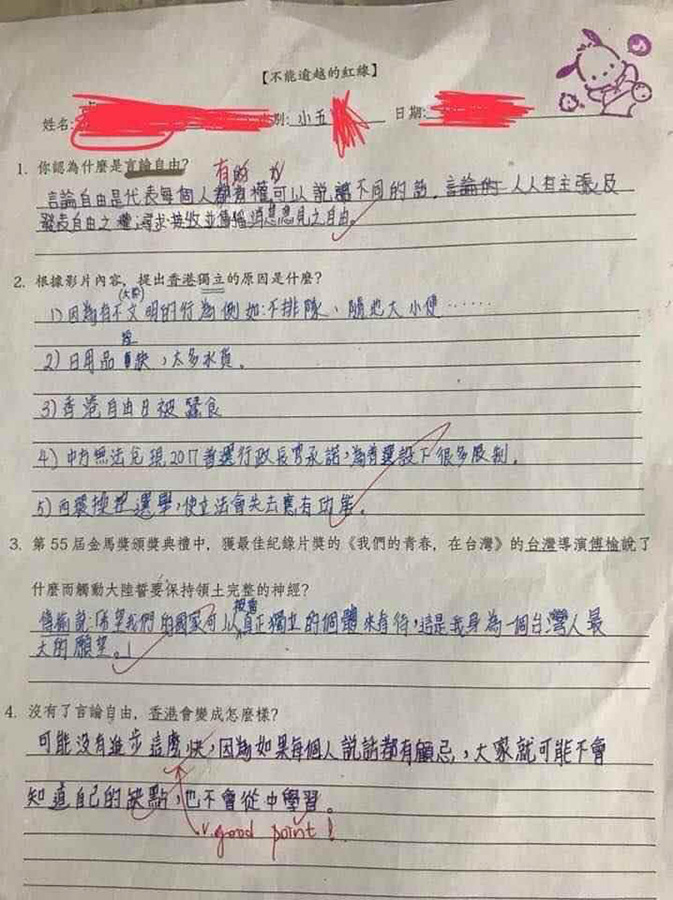 【不能逾越的紅線】
姓名: 別: 小五 日期:
1. 你認為什麼是言論自由?
有的
言論自由是代表每個人都有權可以說不同的話。言論的 人人有主張及
發表自由之權;尋求、接收並傳播消息意見之自由。
2. 根據影片內容,提出香港獨立的原因是什麼?
1) 因為有不文明的行為例如:不排隊、隨地大小便……
2) 日用品短缺,太多水貨。
3) 香港自由日被蠶食
4) 中方無法兌現2017普選行政長官承諾,為普選設下很多限制。
5) 西環操控選舉,使立法會失去應有功能。
3. 第 55 屆金馬獎頒獎典禮中,獲最佳紀錄片獎的《我們的青春,在台灣》的台灣導演傅榆說了
什麼而觸動大陸誓要保持領土完整的神經?
傅榆說:「希望我們的國家可以被當真正獨立的個體來看待,這是我身為一個台灣人最
大的願望。」
4. 沒有了言論自由,香港會變成怎麼樣?
可能沒有進步這麼快,因為如果每個人說話都有顧忌,大家就可能不會
知道自己的缺點,也不會從中學習。
v. good point!